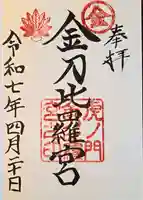 奉拝
金刀比羅宮
虎ノ門
令和七年四月二十日